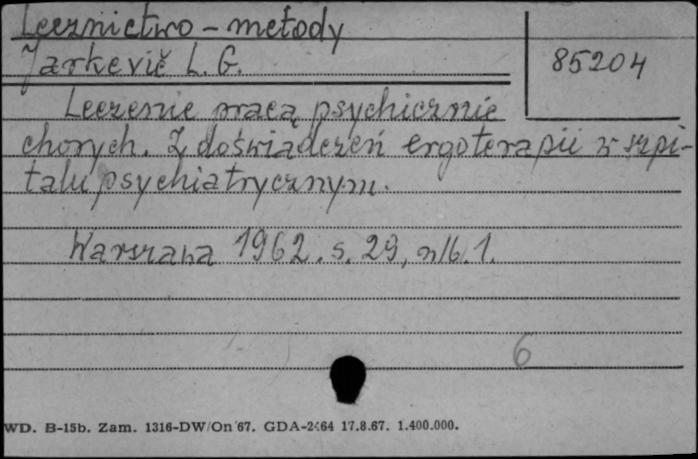 Lecznictwo - metody
Jarkevič L. G.
85204
Leczenie pracą psychicznie
chorych. Z doświadczeń ergoterapii w szpi-
talu psychiatrycznym.
Warszawa 1962. s. 29, nlb. 1.
6
WD. B-15b. Zam. 1316-DW/On 67. GDA-2464 17.8.67. 1.400.000.